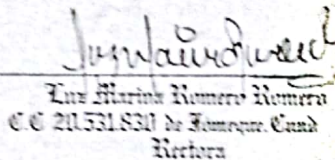 Luz Marina Romero Romero
C.C 20.531.830 de Fomeque. Cund
Rectora